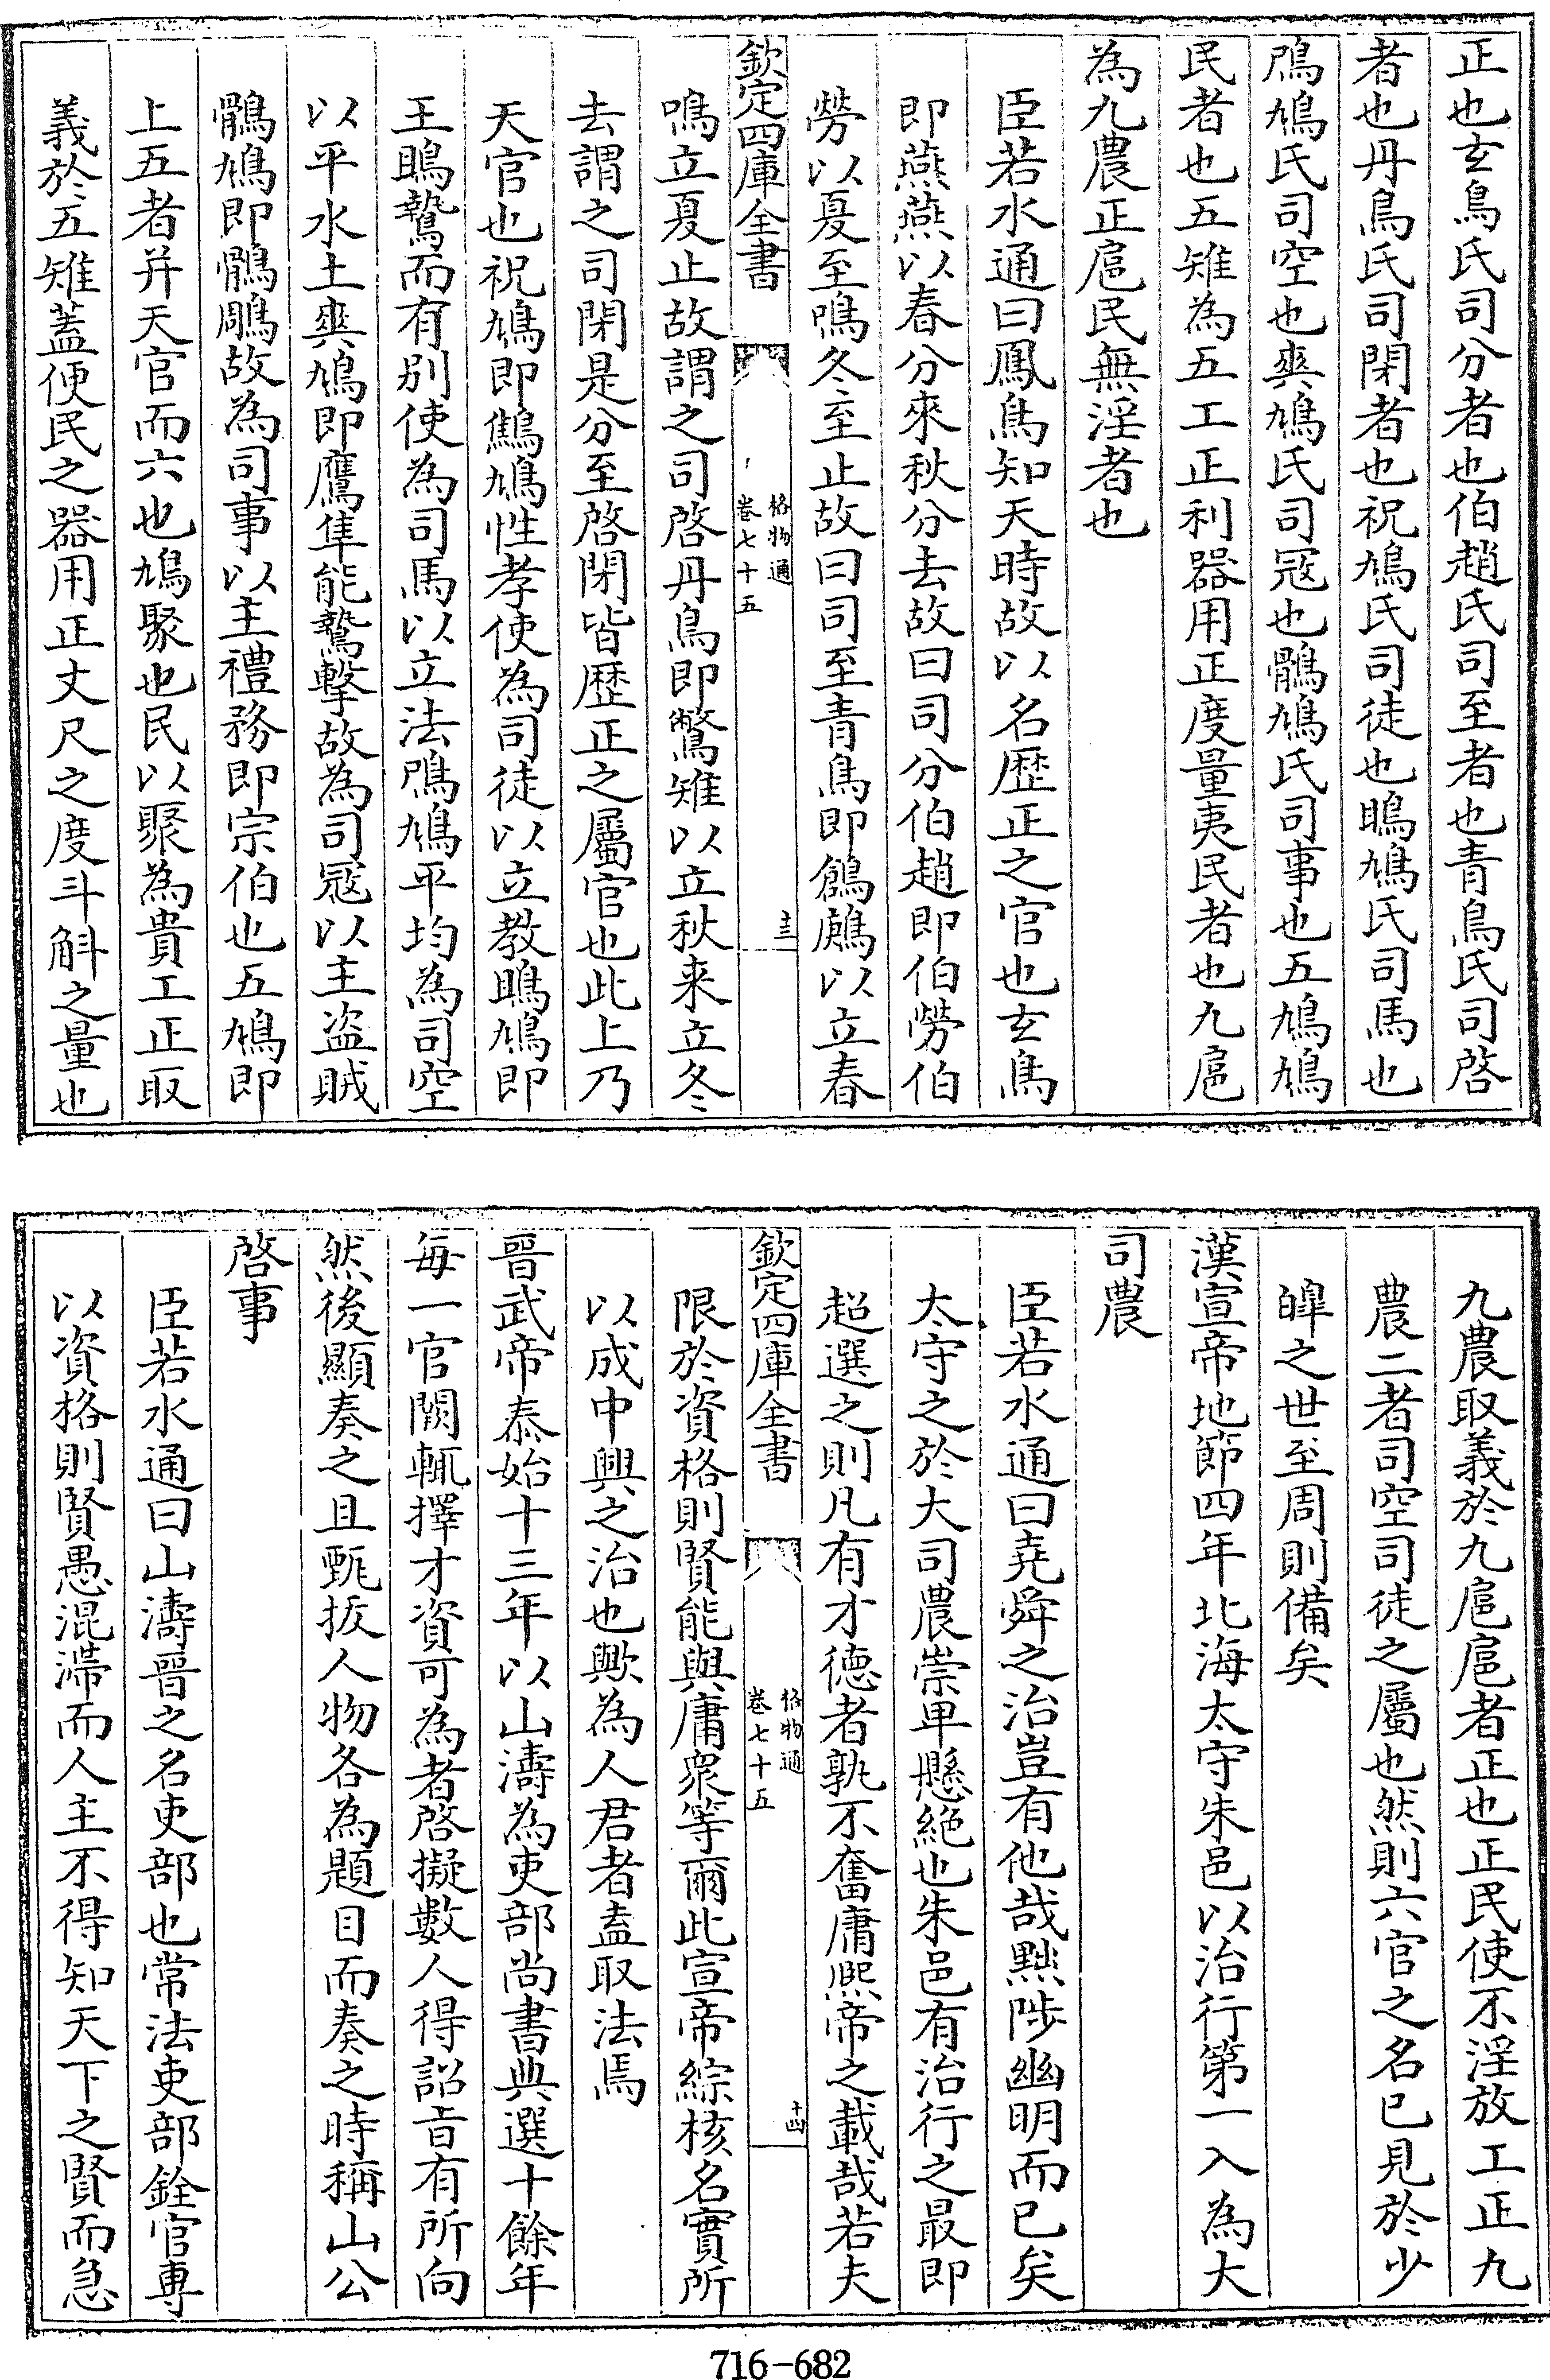 正也玄鳥氏司分者也伯趙氏司至者也青鳥氏司啓
者也丹鳥氏司閉者也祝鳩氏司徒也鴡鳩氏司馬也
鳲鳩氏司空也爽鳩氏司冦也鶻鳩氏司事也五鳩鳩
民者也五雉為五工正利器用正度量夷民者也九扈
為九農正扈民無淫者也
臣若水通曰鳳鳥知天時故以名歴正之官也玄鳥
即燕燕以春分來秋分去故曰司分伯趙即伯勞伯
勞以夏至鳴冬至止故曰司至青鳥即鶬鴳以立春
欽定四庫全書
格物通
卷七十五
十三
鳴立夏止故謂之司啓丹鳥即鷩雉以立秋来立冬
去謂之司閉是分至啓閉皆歴正之屬官也此上乃
天官也祝鳩即鷦鳩性孝使為司徒以立教鴡鳩即
王鴡鷙而有別使為司馬以立法鳲鳩平均為司空
以平水土爽鳩即鷹隼能鷙擊故為司冦以主盗賊
鶻鳩即鶻鵰故為司事以主禮務即宗伯也五鳩即
上五者并天官而六也鳩聚也民以聚為貴工正取
義於五雉葢便民之器用正丈尺之度斗斛之量也
九農取義於九扈扈者正也正民使不淫放工正九
農二者司空司徒之屬也然則六官之名已見於少
皥之世至周則備矣
漢宣帝地節四年北海太守朱邑以治行第一入為大
司農
臣若水通曰堯舜之治豈有他哉黜陟幽明而已矣
太守之於大司農崇卑懸絶也朱邑有治行之最即
超選之則凡有才徳者孰不奮庸熙帝之載哉若夫
欽定四庫全書
格物通
卷七十五
十四
限於資格則賢能與庸衆等爾此宣帝綜核名實所
以成中興之治也歟為人君者盍取法焉
晉武帝泰始十三年以山濤為吏部尚書典選十餘年
每一官闕輒擇才資可為者啓擬數人得詔㫖有所向
然後顯奏之且甄拔人物各為題目而奏之時稱山公
啓事
臣若水通曰山濤晉之名吏部也常法吏部銓官専
以資格則賢愚混滯而人主不得知天下之賢而急
716-682